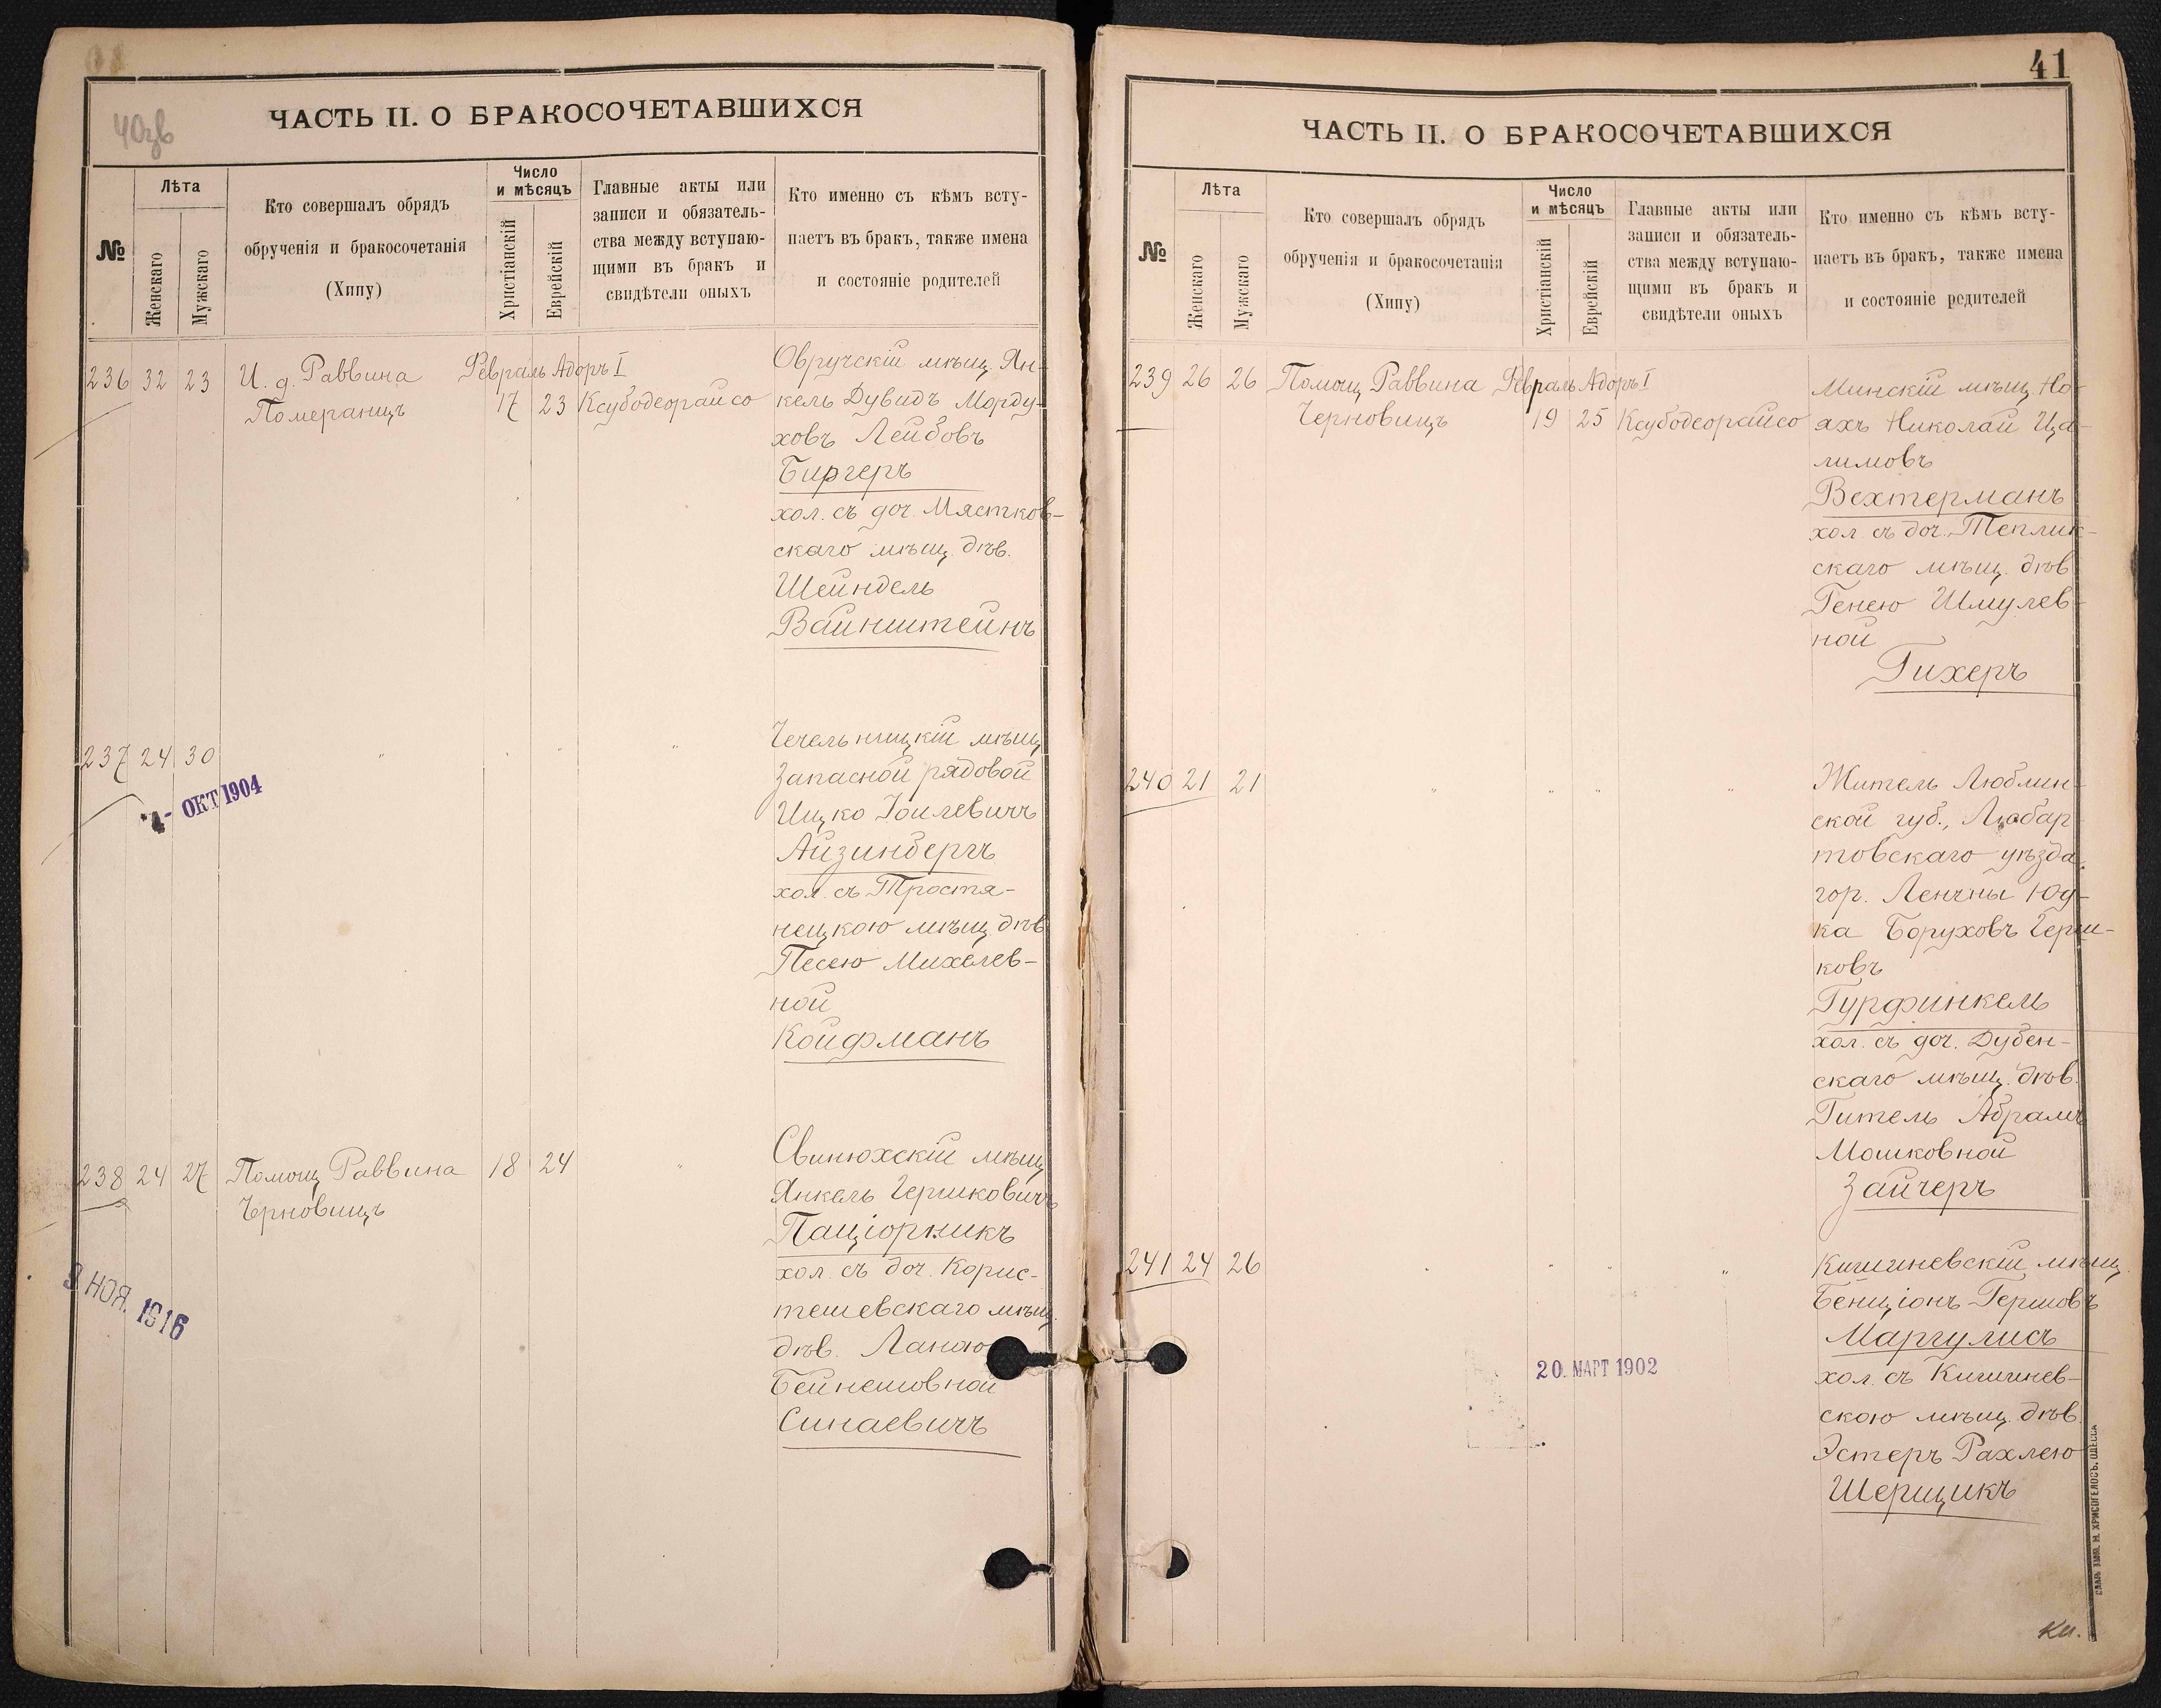 40зв
ЧАСТЬ II. О БРАКОСОЧЕТАВШИХСЯ
№
Лѣта
Женскаго
Мужскаго
Кто совершалъ обрядъ
обрученія и бракосочетанія
(Хипу)
Число
и мѣсяцъ
Христіанскій
Еврейскій
Главные акты или
записи и обязатель-
ства между вступаю-
щими въ бракъ и
свидѣтели оныхъ
Кто именно съ кѣмъ всту-
паетъ въ бракъ, также имена
и состояніе родителей
236 32 23 И. д. Раввина Февраль Адоръ I
Померанцъ 17 23 Ксубодеорайсо
Овручскій мѣщ. Ян-
кель Дувидъ Морду-
ховъ Лейбовъ
Биргеръ
хол. съ доч. Мястков-
скаго мѣщ. дѣв.
Шейндель
Вайнштейнъ
237 24 30 " " " "
4- ОКТ 1904
Чечельницкій мѣщ.
Запасной рядовой
Ицко Іоилевичъ
Айзинбергъ
хол. съ Тростя-
нецкою мѣщ. дѣв.
Песею Михелев-
ной
Койфманъ
238 24 27 Помощ. Раввина 18 24 "
Черновицъ
3 НОЯ. 1916
Свинюхскій мѣщ.
Янкель Гершковичъ
Паціорникъ
хол. съ доч. Корис-
тешевскаго мѣщ.
дѣв. Ланою
Бейнешовной
Синаевичъ
41
ЧАСТЬ II. О БРАКОСОЧЕТАВШИХСЯ
№
Лѣта
Женскаго
Мужскаго
Кто совершалъ обрядъ
обрученія и бракосочетанія
(Хипу)
Число
и мѣсяцъ
Христіанскій
Еврейскій
Главные акты или
записи и обязатель-
ства между вступаю-
щими въ бракъ и
свидѣтели оныхъ
Кто именно съ кѣмъ всту-
паетъ въ бракъ, также имена
и состояніе родителей
239 26 26 Помощ. Раввина Февраль Адоръ I
Черновицъ 19 25 Ксубодеорайсо
Минскій мѣщ. Но-
ахъ Николай Ца-
лимовъ
Вехтерманъ
хол. съ доч. Теплик-
скаго мѣщ. дѣв
Генею Шмулев-
ной
Гихеръ
240 21 21 " " " "
Житель Люблин-
ской губ., Любар-
товскаго уѣзда
гор. Ленчны Юд-
ка Боруховъ Герш-
ковъ
Гурфинкель
хол. съ доч. Дубен-
скаго мѣщ. дѣв.
Гитель Абрамъ
Мошковной
Зайчеръ
241 24 26 " " " "
20. МАРТ 1902
Кишиневскій мѣщ.
Бенціонъ Гершовъ
Маргулисъ
хол. съ Кишинев-
скою мѣщ. дѣв.
Эстеръ Рахлею
Шерщикъ
СЛАВ. ТИПО. Н. ХРИСОГЕЛОСЪ. ОДЕССА